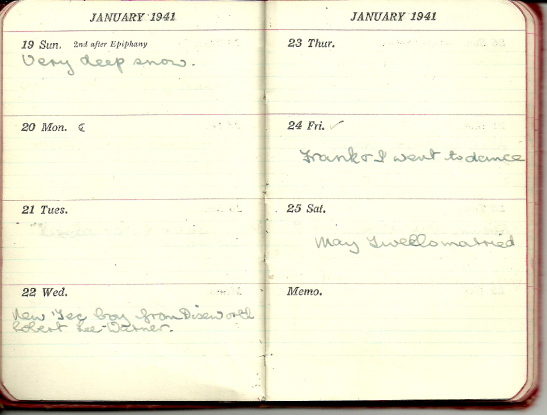 JANUARY 1941
19 Sun. 2nd after Epiphany
Very deep snow.
20 Mon. ☾
21 Tues.
22 Wed.
New Tec boy from Diseworth
Robert Lee-Warner.
JANUARY 1941
23 Thur.
24 Fri. ✓
Frank & I went to dance
25 Sat.
May Twells married
Memo.